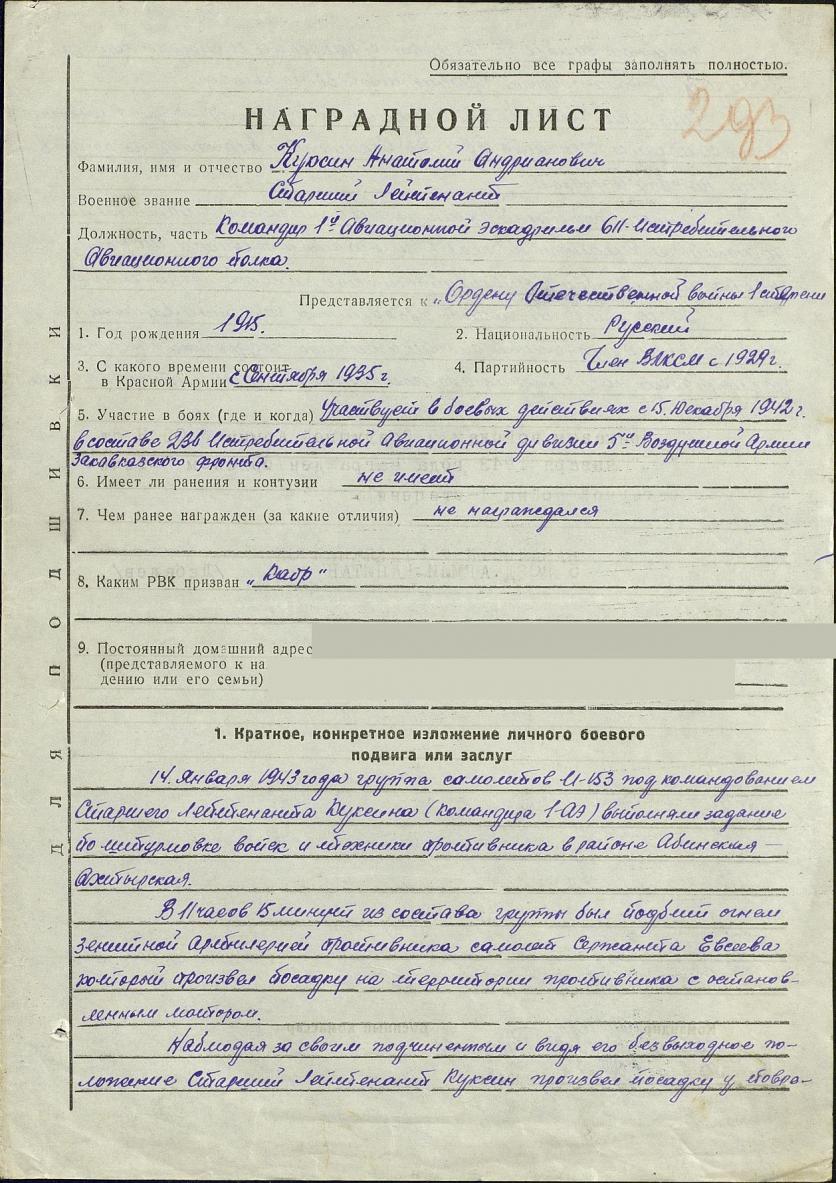 Обязательно все графы заполнять полностью.
293
НАГРАДНОЙ ЛИСТ
Фамилия, имя и отчество Куксин Анатолий Андрианович
Военное звание Старший Лейтенант
Должность, часть Командир 1й Авиационной эскадрильи 611-Истребительного
Авиационного полка.
Представляется к „Ордену Отечественной войны 1 степени
1. Год рождения 1915.
2. Национальность Русский
3. С какого времени состоит
в Красной Армии с Сентября 1935 г.
4. Партийность Член ВЛКСМ с 1929г.
5. Участие в боях (где и когда) Участвует в боевых действиях с 15. Декабря 1942 г.
в составе 236 Истребительной Авиационной дивизии 5й Воздушной Армии
Закавказского фронта.
6. Имеет ли ранения и контузии не имеет
7. Чем ранее награжден (за какие отличия) не награждался
8. Каким РВК призван „Кадр"
9. Постоянный домашний адрес
(представляемого к на
дению или его семьи)
ДЛЯ ПОДШИВКИ
1. Краткое, конкретное изложение личного боевого
подвига или заслуг
14. Января 1943 года группа самолетов И-153 под командованием
Старшего Лейтенанта Куксина (командира 1-АЭ) выполняли задание
по штурмовке войск и техники противника в районе Абинская —
Ахтырская.
В 11 часов 15 минут из состава группы был подбит огнем
зенитной Артилерией противника самолет Сержанта Евсеева
который произвел посадку на территории противника с останов-
ленным мотором.
Наблюдая за своим подчиненным и видя его безвыходное по-
ложение Старший Лейтенант Куксин произвел посадку у